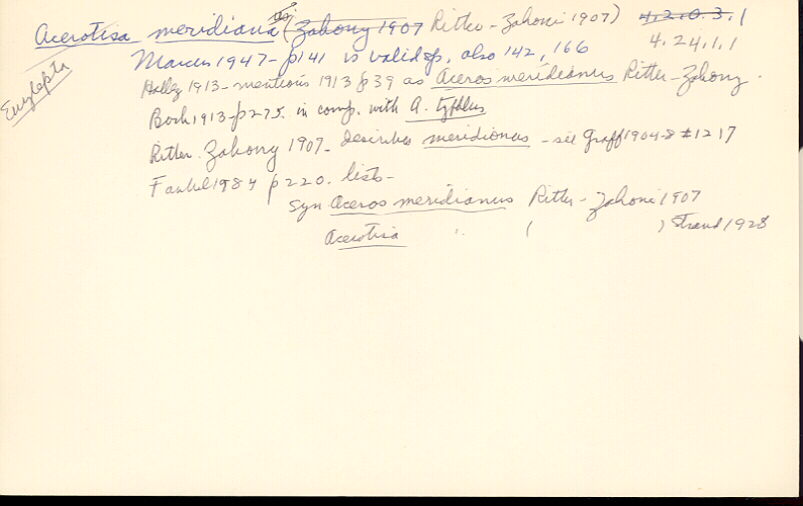 Acerotisa meridiana (Zahony 1907 Ritter-Zahoni 1907) 4.2.0.3.1
4.24.1.1
Eurylepta
Marcus 1947 - p141 is valid sp. also 142, 166
Hallez 1913 - mentions 1913 p39 as Aceros meridianus Ritter-Zahony.
Bock 1913 - p275. in comp. with A. typhlus
Ritter-Zahony 1907 - describes meridianus - see Graff 1904-8 #1217
Faubel 1984 p220. lists -
syn Aceros meridianus Ritter-Zahoni 1907
Acerotisa " ( ) Strand 1928